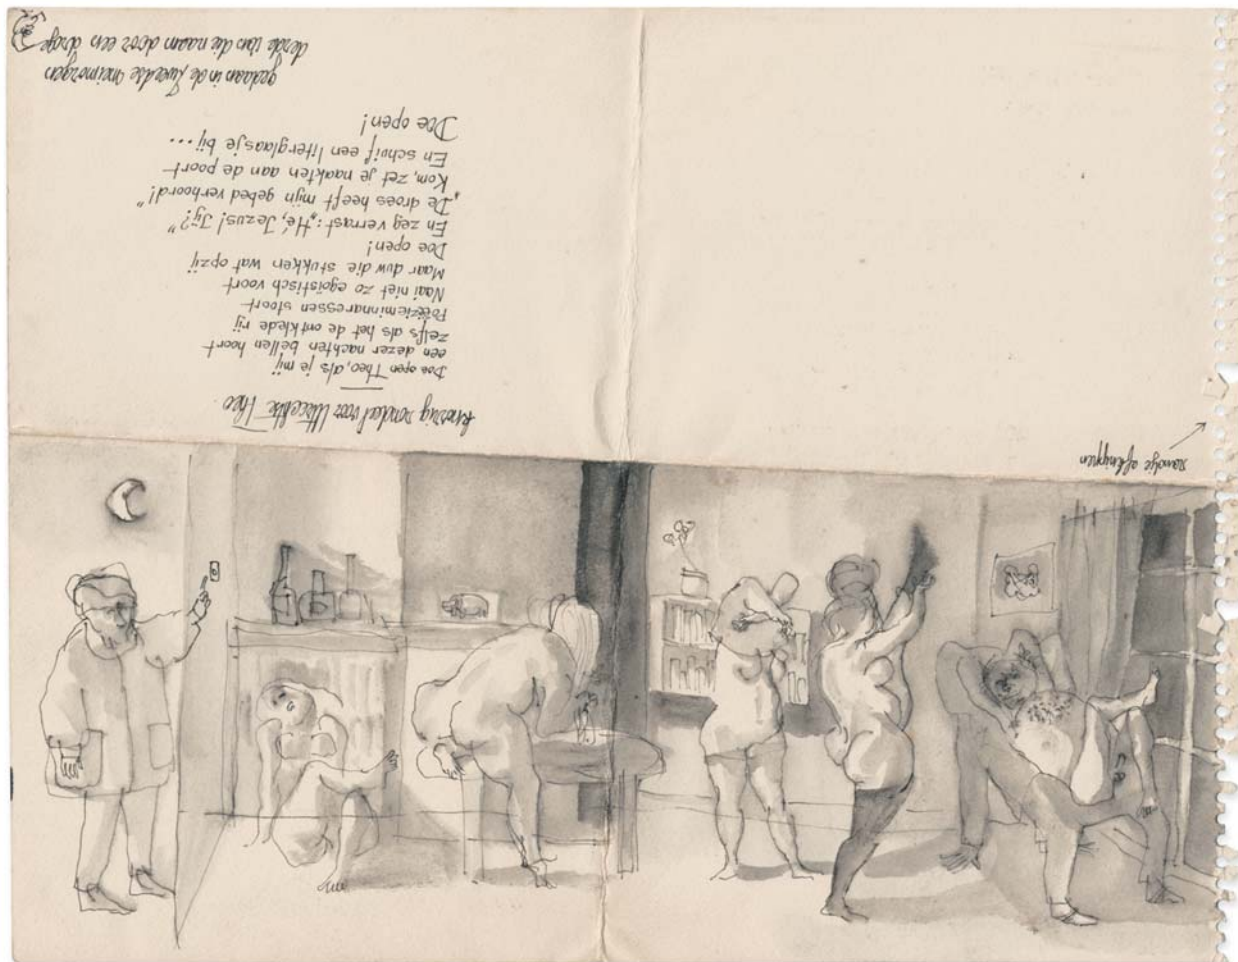 Knorrig rondeel voor Utrechtse Theo.
Doe open Theo, als je mij
een dezer nachten bellen hoort
zelfs als het de ontklede rij
Poëzieminnaressen stoort
Naai niet zo egoïstisch voort
Maar duw die stukken wat opzij
Doe open!
En zeg verrast: „Hé, Jezus! Jij?”
„De droes heeft mijn gebed verhoord!”
Kom, zet je naakten aan de poort
En schuif een literglaasje bij ...
Doe open!
gedaan in de Zweedse meimorgen
derde van die naam door een droge
randje afknippen